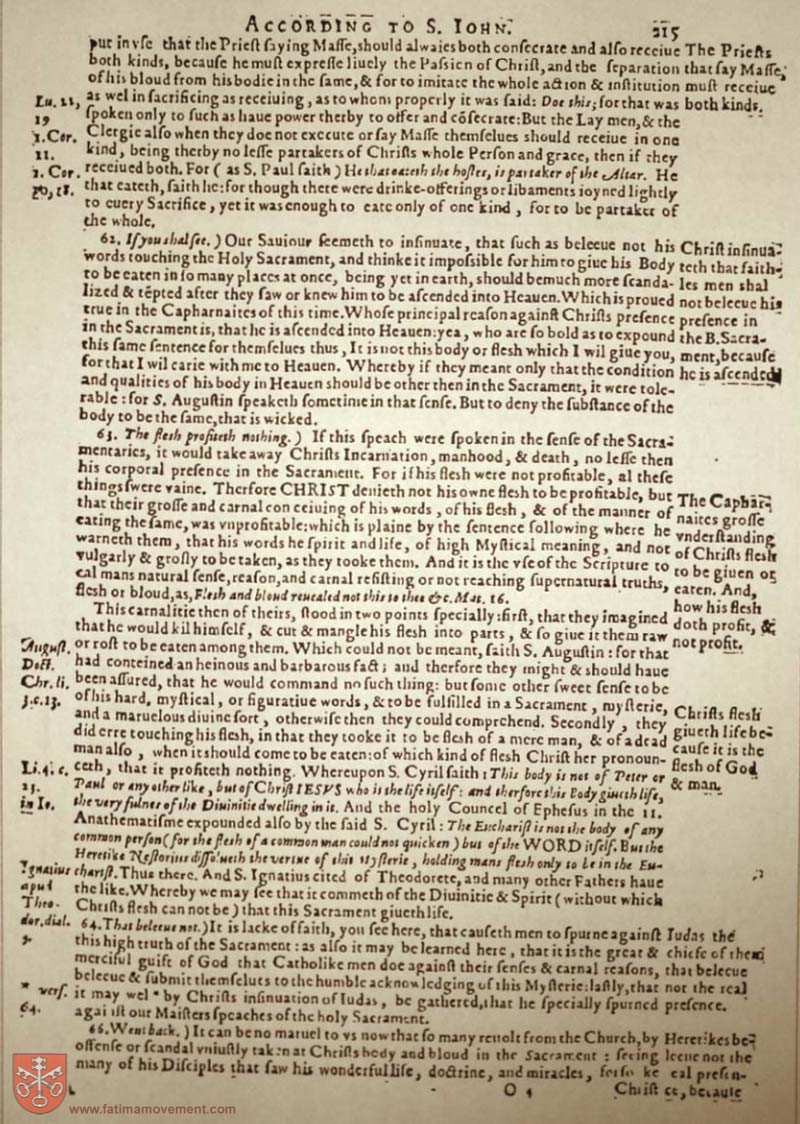 ACCORDING TO S. IOHN. 215
put in vſe that the Prieſt ſaying Maſſe, ſhould alwaies both conſecrate and alſo receiue
both kinds, becauſe he muſt expreſſe liuely the Paſsion of Chriſt, and the ſeparation
of his bloud from his bodie in the ſame, & for to imitate the whole action & inſtitution
as wel in ſacrificing as receiuing, as to whom properly it was ſaid: Doe this; for that was
ſpoken only to ſuch as haue power therby to offer and cõſecrate: But the Lay men, & the
Clergie alſo when they doe not execute or ſay Maſſe themſelues should receiue in one
kind, being therby no leſſe partakers of Chriſts whole Perſon and grace, then if they
receiued both. For ( as S. Paul ſaith ) He that eateth the hoſtes, is partaker of the Altar. He
that eateth, ſaith he: for though there were drinke-offerings or libaments ioyned lightly
to euery Sacrifice, yet it was enough to eate only of one kind, for to be partaker of
the whole.
62. If you shal ſee. ) Our Sauiour ſeemeth to inſinuate, that ſuch as beleeue not his
words touching the Holy Sacrament, and thinke it impoſsible for him to giue his Body
to be eaten in ſo many places at once, being yet in earth, should be much more ſcanda-
lized & tẽpted after they ſaw or knew him to be aſcended into Heauen. Which is proued
true in the Capharnaites of this time. Whoſe principal reaſon againſt Chriſts preſence
in the Sacrament is, that he is aſcended into Heauen: yea, who are ſo bold as to expound
this ſame ſentence for themſelues thus, It is not this body or flesh which I wil giue you,
for that I wil carie with me to Heauen. Whereby if they meant only that the condition
and qualities of his body in Heauen should be other then in the Sacrament, it were tole-
rable: for S. Auguſtin ſpeaketh ſometime in that ſenſe. But to deny the ſubſtance of the
body to be the ſame, that is wicked.
63. The flesh profiteth nothing. ) If this ſpeach were ſpoken in the ſenſe of the Sacra-
mentaries, it would take away Chriſts Incarnation, manhood, & death, no leſſe then
his corporal preſence in the Sacrament. For if his flesh were not profitable, al theſe
things were vaine. Therfore CHRIST denieth not his owne flesh to be profitable, but
that their groſſe and carnal conceiuing of his words, of his flesh, & of the manner of
eating the ſame, was vnprofitable: which is plaine by the ſentence following where he
warneth them, that his words be ſpirit and life, of high Myſtical meaning, and not
vulgarly & groſly to be taken, as they tooke them. And it is the vſe of the Scripture to
cal mans natural ſenſe, reaſon, and carnal reſiſting or not reaching ſupernatural truths,
flesh or bloud, as, Flesh and bloud reuealed not this to thee &c. Mat. 16.
This carnalitie then of theirs, ſtood in two points ſpecially: firſt, that they imagined
that he would kil himſelf, & cut & mangle his flesh into parts, & ſo giue it them raw
or roſt to be eaten among them. Which could not be meant, ſaith S. Auguſtin: for that
had conteined an heinous and barbarous fact; and therfore they might & should haue
been aſſured, that he would command no ſuch thing: but ſome other ſweet ſenſe to be
of his hard, myſtical, or figuratiue words, & to be fulfilled in a Sacrament, myſterie,
and a maruelous diuine ſort, otherwiſe then they could comprehend. Secondly, they
did erre touching his flesh, in that they tooke it to be flesh of a mere man, & of a dead
man alſo, when it should come to be eaten: of which kind of flesh Chriſt her pronoun-
ceth, that it profiteth nothing. Whereupon S. Cyril ſaith: This body is not of Peter or
Paul or any other like, but of Chriſt IESVS who is the life itſelf: and therfore this Body giueth life,
the very fulnes of the Diuinitie dwelling in it. And the holy Councel of Epheſus in the 11.
Anathematiſme expounded alſo by the ſaid S. Cyril: The Euchariſt is not the body of any
common perſon (for the flesh of a common man could not quicken) but of the WORD itſelf. But the
Heretike Neſtorius diſſolueth the vertue of this Myſterie, holding mans flesh only to be in the Eu-
chariſt. Thus there. And S. Ignatius cited of Theodorete, and many other Fathers haue
the like. Whereby we may ſee that it commeth of the Diuinitie & Spirit (without which
Chriſts flesh can not be) that this Sacrament giueth life.
64. That beleeue not. ) It is lacke of faith, you ſee here, that cauſeth men to ſpurne againſt
this high truth of the Sacrament: as alſo it may be learned here, that it is the great &
merciful guift of God that Catholike men doe againſt their ſenſes & carnal reaſons,
beleeue & ſubmit themſelues to the humble acknowledging of this Myſterie: laſtly, that
it may wel * by Chriſts inſinuation of Iudas, be gathered, that he ſpecially ſpurned
againſt our Maiſters ſpeaches of the holy Sacrament.
66. Went back. ) It can be no maruel to vs now that ſo many reuolt from the Church, by
offenſe or ſcandal vniuſtly taken at Chriſts body and bloud in the Sacrament: ſeeing
many of his Diſciples that ſaw his wonderful life, doctrine, and miracles, forſooke
O 4 Chriſt
Lu. 22,
19
1. Cor.
11.
1. Cor.
10, 18.
Auguſt.
Doct.
Chr. li.
3. c. 13.
Li. 4. c.
23.
in Io.
Ignatius
apud
Theo-
dor. dial.
* verſ.
64.
The Prieſts
that ſay Maſſe,
muſt receiue
both kinds.
Chriſt inſinua-
teth that faith-
les men shal
not beleeue his
preſence in
the B. Sacra-
ment, becauſe
he is aſcended
The Caphar-
naites groſſe
vnderſtanding
of Chriſts flesh
to be giuen or
eaten. And,
how his flesh
doth profit, &
not profit.
Chriſts flesh
giueth life be-
cauſe it is the
flesh of God
& man.
Iudas the
chiefe of them
that beleeue
not the real
preſence.
Heretikes be-
leeue not the
real preſen-
ce, becauſe
www.fatimamovement.com